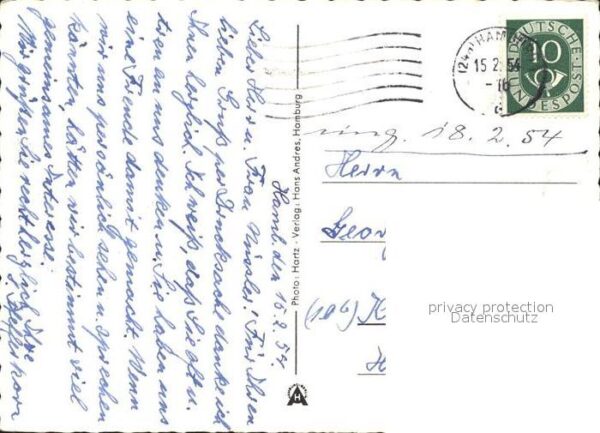 Hamb. den 15.2.54.
Liebe Herr u. Frau! Für Ihren
lieben Gruß per Drucksache danke ich
Ihnen herzlich. Ich weiß, daß Sie oft u.
gern an uns denken u. Sie haben uns
eine Freude damit gemacht. Wenn
wir uns persönlich sehen u. sprechen
könnten, hätten wir bestimmt viel
gemeinsames Interesse.
Wir grüßen Sie recht herzlich Ihre
Photo: Hartz · Verlag: Hans Andres, Hamburg
HAMBURG
15.2.54
-16
c
DEUTSCHE
BUNDESPOST
10
18.2.54
Herrn
Geor
H
privacy protection
Datenschutz